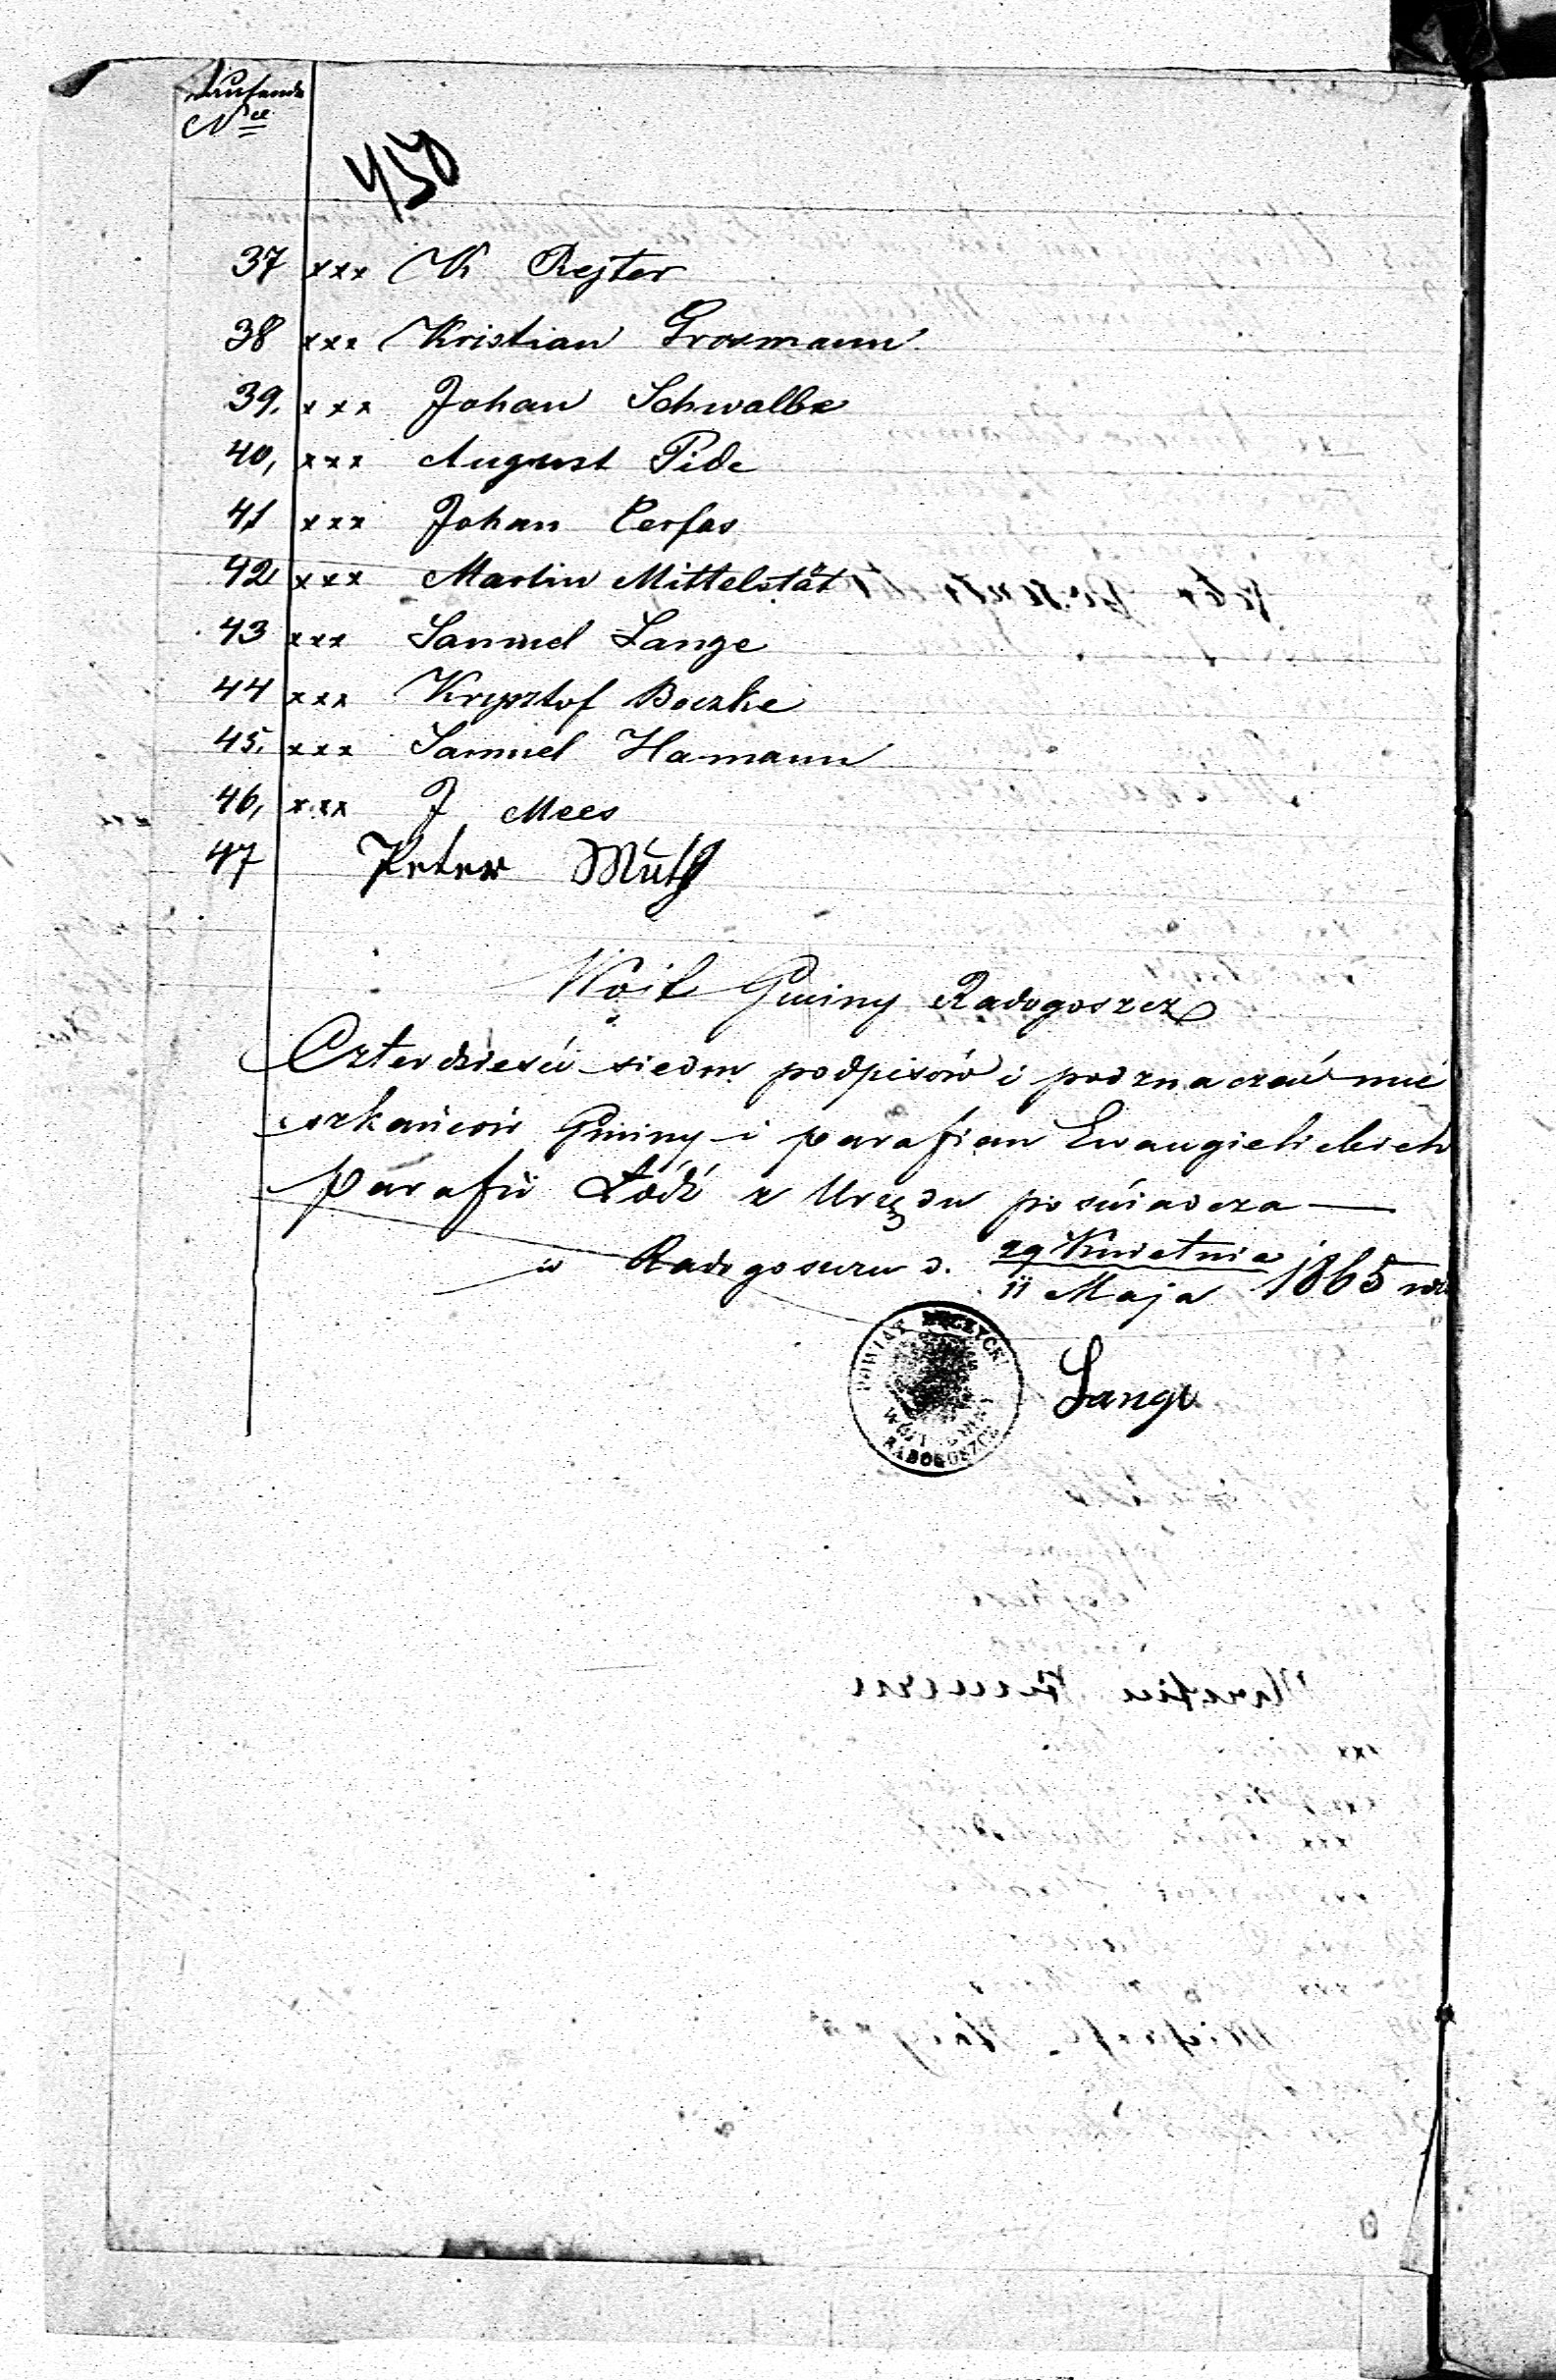 Laufende
N<sup>ro</sup>
450
37 xxx K Rejter
38 xxx Kristian Grosmann
39, xxx Johan Schwalbe
40, xxx August Pide
41 xxx Johan Cerfas
42 xxx Martin Mittelstät
43 xxx Samuel Lange
44 xxx Krysztof Boczke
45, xxx Samuel Hamann
46, xxx J Mees
47 Peter Muth
Wójt Gminy Radogoszcz
Czterdzieści siedm podpisów i podznaczeń mie
szkańców Gminy i parafian Ewangielickich
Parafii Łódź z Urzędu poświadcza —
w Radogoszczu d. 29 Kwietnia
11 Maja 1865 r
POWIAT ŁĘCZYCKI
WÓJT GMINY
RADOGOSZCZ
Lange